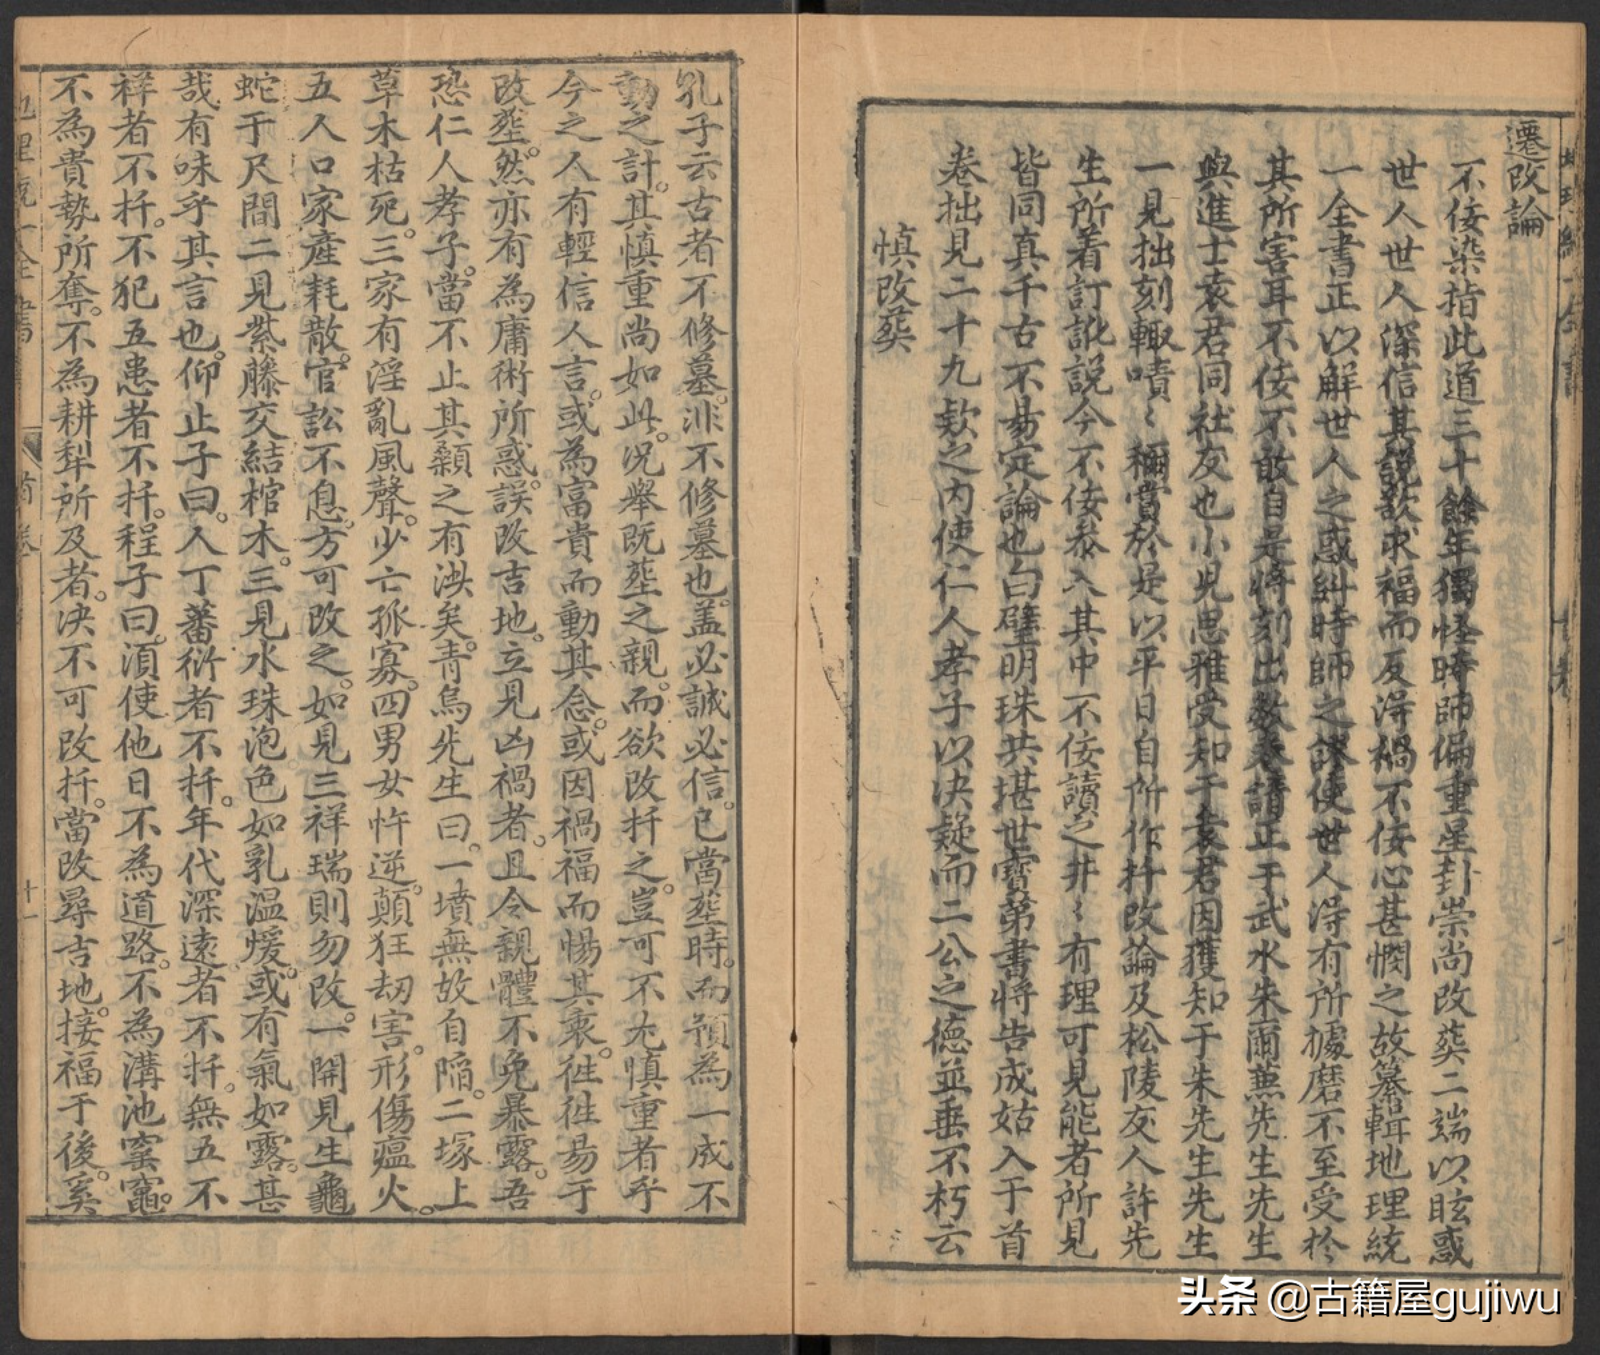 遷改論
不佞染指此道三十餘年獨怪時師偏重星卦崇尚改葬二端以眩惑
世人世人深信其説欲求福而反淂禍不佞心甚憫之故纂輯地理統
一全書正以解世人之惑糾時師之謬使世人淂有所據磨不至受於
其所害耳不佞不敢自是將刻出数卷請正于武水朱爾蕪先生先生
與進士袁君同社友也小児思雅受知于袁君因獲知于朱先生先生
一見拙刻輙嘖〻稱賞於是以平日自所作扦改論及松陵友人許先
生所着訂訛説今不佞叅入其中不佞讀之井〻有理可見能者所見
皆同真千古不易定論也白璧明珠共堪世寶第書將告成姑入于首
卷拙見二十九欵之内使仁人孝子以决疑而二公之德並垂不朽云
慎改葬
孔子云古者不修墓非不修墓也盖必誠必信已當塟時而預為一成不
動之計其慎重尚如此况舉既塟之親而欲改扦之豈可不尤慎重者乎
今之人有輕信人言或為富貴而動其念或因禍福而惕其衷徃徃易于
改塟然亦有為庸術所惑誤改吉地立見凶禍者且令親體不免暴露吾
恐仁人孝子當不止其顙之有泚矣青烏先生曰一墳無故自陷二塚上
草木枯死三家有淫亂風聲少亡孤寡四男女忤逆顛狂刼害形傷瘟火
五人口家產耗散官訟不息方可改之如見三祥瑞則勿改一開見生龜
蛇于尺間二見紫藤交結棺木三見水珠泡色如乳温煖或有氣如露甚
哉有味乎其言也仰止子曰人丁蕃衍者不扦年代深遠者不扦無五不
祥者不扦不犯五患者不扦程子曰湏使他日不為道路不為溝池窯竈
不為貴勢所奪不為耕犁所及者决不可改扦當改尋吉地接福于後奚
首卷
十一
头条 @古籍屋gujiwu